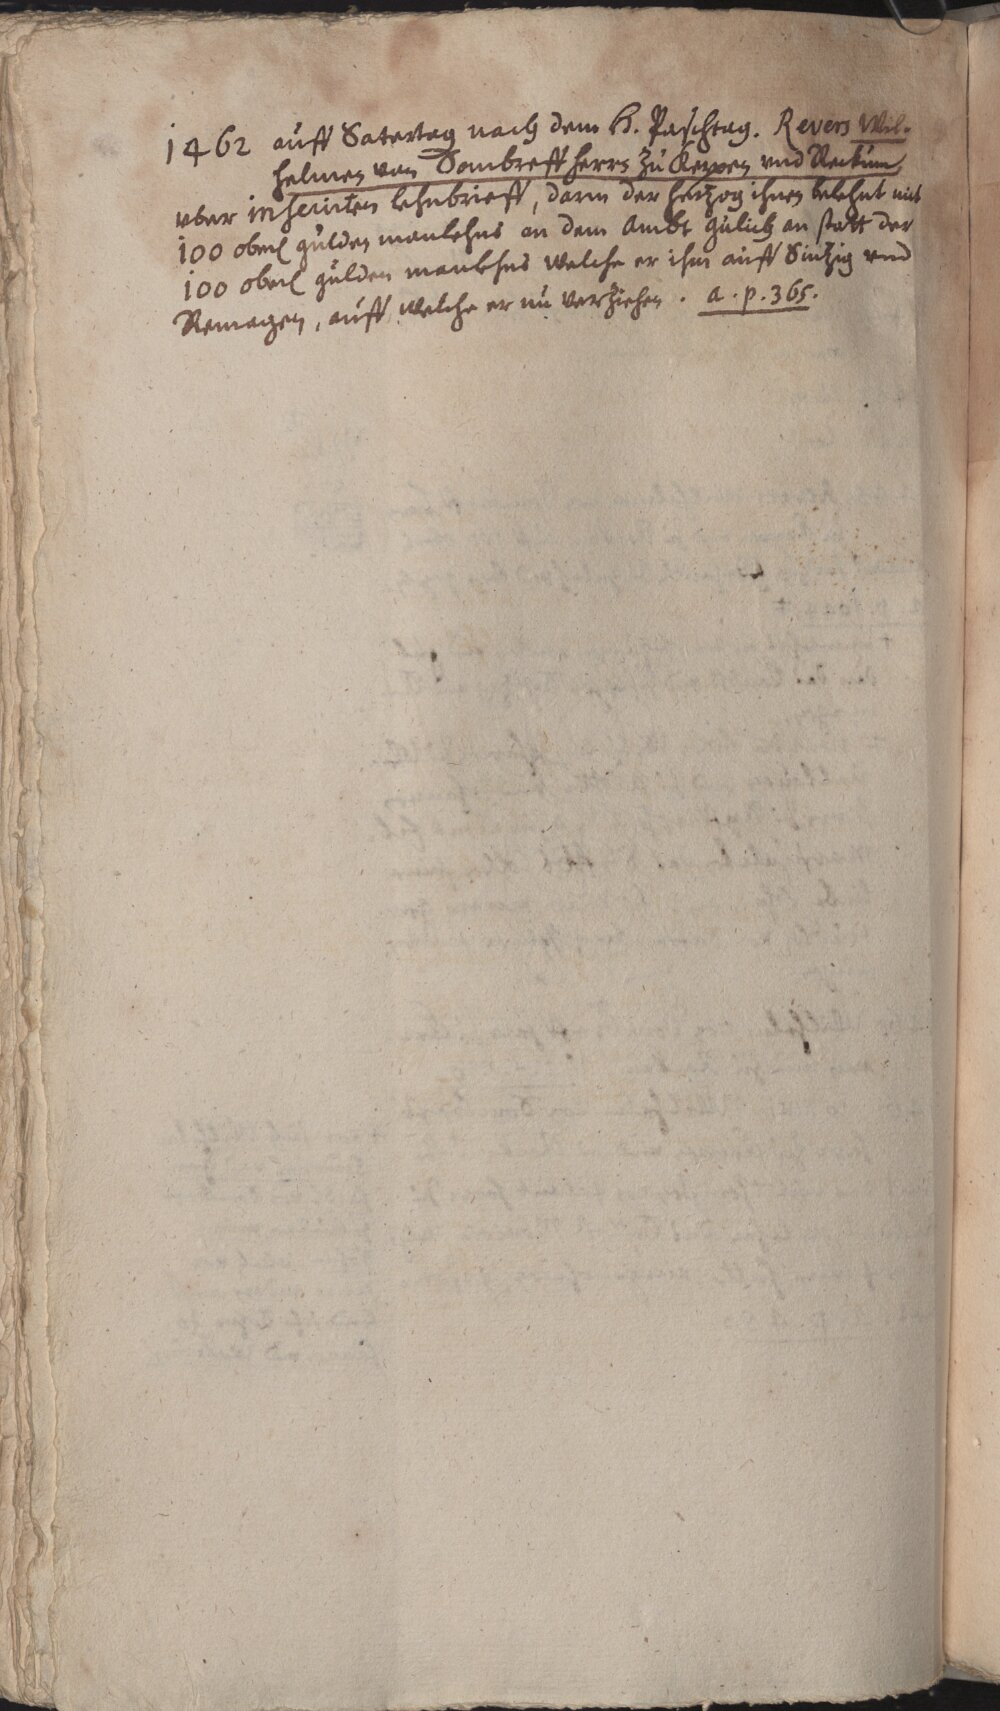 1462 auff Satertag nach dem H. Paschtag. Revers Wil-
helmen von Sombreff herrn zu Kerpen und Reckum
uber inserirten lehnbrieff, darin der Hertzog ihnen belehnt mit
100 oberl gulden manlehns an dem Ambt Gulich an statt der
100 oberl gulden manlehns welche er ihm auff Sintzig und
Remagen, auff welche er nu verziehen. a. p. 365.